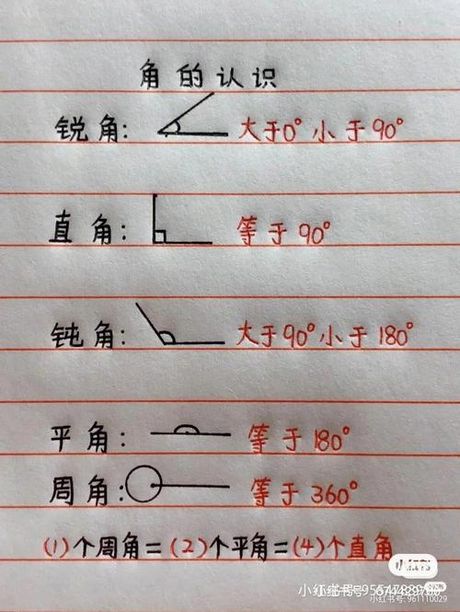 角的认识
锐角: 大于0° 小于90°
直角: 等于90°
钝角: 大于90°小于180°
平角: 等于180°
周角: 等于360°
(1)个周角=(2)个平角=(4)个直角
小红书
小红书号: 961110029